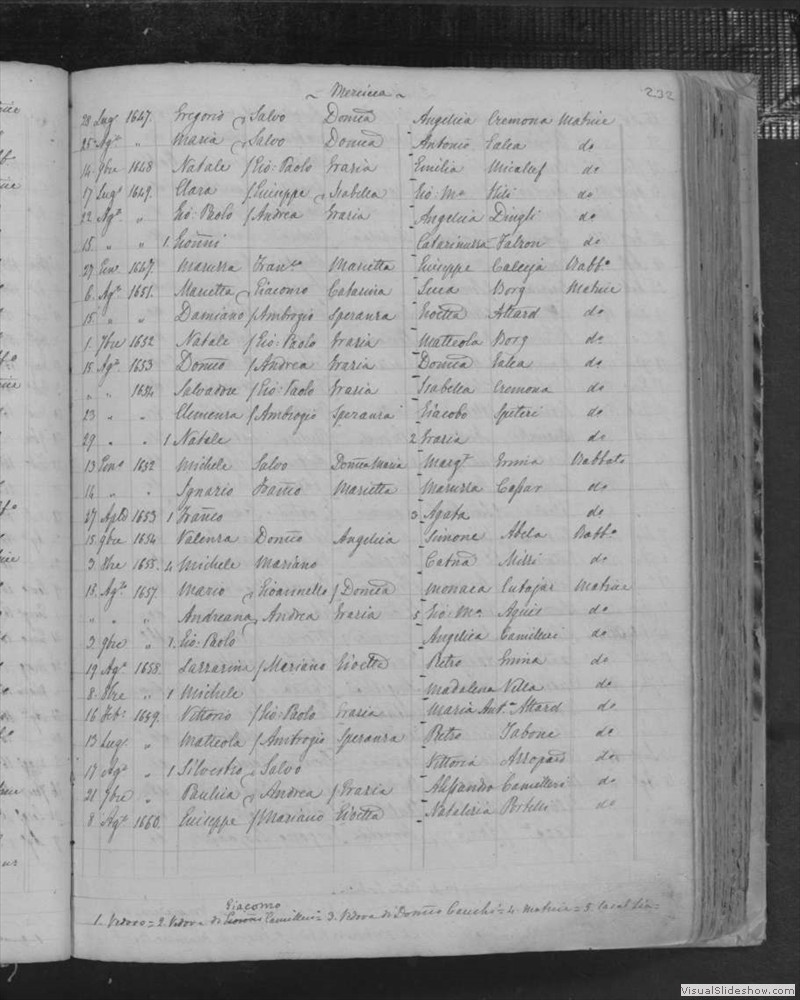 ~ Mercieca ~
232
28 Lug. 1647. Gregorio Salvo Domca Angelica Cremona Matrice
25 Agto " Maria Salvo Domca Antonio Galea do
14 9bre 1648 Natale Gio: Paolo Grazia Emilia Micalef do
17 Lugo 1649. Clara Giuseppe Isabella Gio: Ma do
22 Ago " Gio: Paolo Andrea Grazia Angelica Dingli do
15 " " 1. Gioñni Catarinuzza Falzon do
27 Gen. 1647. Maruzza Franco Marietta Giuseppe Calleja Rabbo
6. Ago 1651. Marietta Giacomo Catarina Borg Matrice
15 " " Damiano Ambrogio Speranza Gioetta Attard do
1 7bre 1652 Natale Gio: Paolo Grazia Matteola Borg do
18 Ago 1653 Domco Andrea Grazia Domca Galea do
" " 1654 Salvadore Gio: Paolo Grazia Isabella Cremona do
23 " " Clemenza Ambrogio Speranza Giacobo Spiteri do
29 " " 1 Natale 2 Grazia do
13 Geno 1652 Michele Salvo Domca Maria Margta Rabbato
14 " " Ignazio Franco Marietta Maruzza Caspar do
27 Aple 1653 1 Franco 3 Agata do
15 9bre 1654 Valenza Domco Angelica Simone Abela Rabbo
3 1655. 4 Michele Mariano Catna Missi do
13. Ago 1657. Mario Gioannello Domca Monaca Cutajar Matrice
" " " Andreana Andrea Grazia 5 Gio: Ma Agius do
2 9bre " 1. Gio: Paolo Angelica Camilleri do
19 Ago 1658. Lazzarina Mariano Gioetta Pietro do
8. " 1 Michele Madalena Vella do
16 Feb. 1659. Vittorio Gio: Paolo Grazia Maria Anta Attard do
13 Lugo. " Matteola Ambrogio Speranza Pietro Tabone do
17 Ago " 1 Silvestro Salvo Vittoria do
21 9bre " Paulica Andrea Grazia Alessandro Camilleri do
8 Ago 1660. Giuseppe Mariano Gioetta Natalizia Portelli do
Giacomo
1. Vedovo = 2. Vedova di Gioñni Camilleri = 3. Vedova di Domco = 4. Matrice = 5. Casal Lia =
VisualSlideshow.com